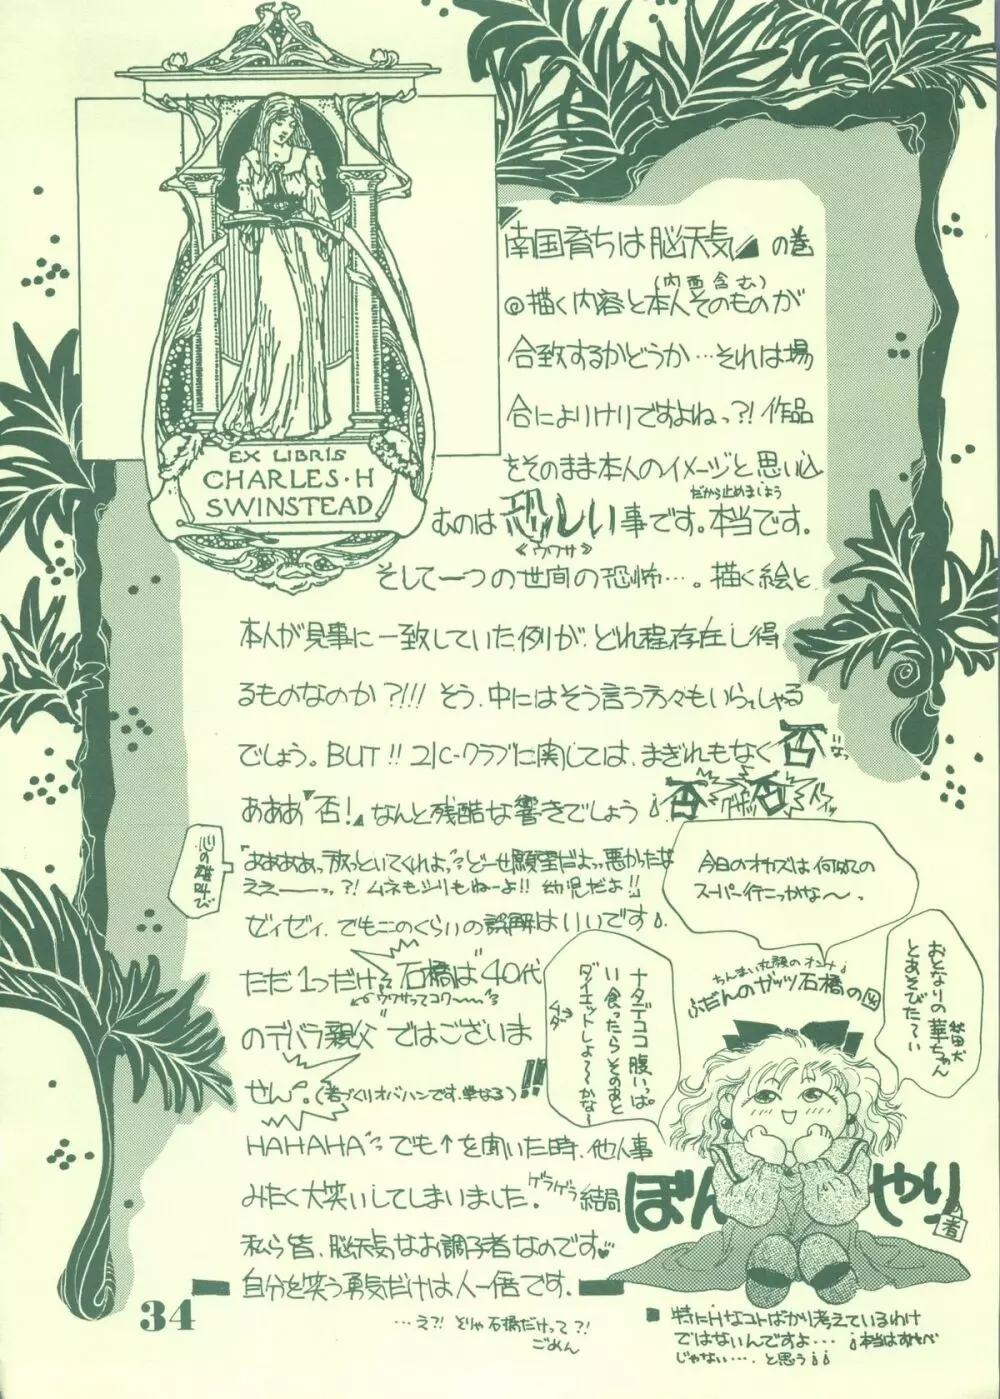 EX LIBRIS
CHARLES・H
SWINSTEAD
南国育ちは脳天気 の巻
(内面含む)
◎描く内容と本人そのものが
合致するかどうか…それは場
合によりけりですよねっ?! 作品
をそのまま本人のイメージと思い込
だから止めましょう
むのは恐しい事です。本当です。
《ウワサ》
そして一つの世間の恐怖…。描く絵と
本人が見事に一致していた例が、どれ程存在し得
るものなのか?!!! そう、中にはそう言う方々もいらっしゃる
でしょう。BUT!! クラブに関しては、まぎれもなく否
あああ"否!"なんと残酷な響きでしょう 否 否
心の雄叫び
「ああああっ放っといてくれよっ?どーせ願望だよっ悪かったな
ええーーっ?! ムネもシリもねーよ!! 幼児だよ!!」
ゼイゼイ、でもこのくらいの誤解はいいです
ただ1つだけ 石橋は"40代
ウワサってコワ〜〜い
のデバラ親父"ではございま
せん。(若づくりオバハンです、単なる)!!
HAHAHA でも↑を聞いた時、他人事
みたく大笑いしてしまいました。ゲラゲラ 結局
私ら皆、脳天気なお調子者なのです♥
自分を笑う勇気だけは人一倍です。
…え?! とりゃ石橋だけって?!
ごめん
今日のオカズは何
スーパー行こっかな〜。
おとなりの華ちゃん
とあそびた〜い
ちんまい丸顔のオンナ
ふだんのガッツ石橋の図
ナタデココ腹いっぱ
い食ったらそのあと
ダイエットしよ〜〜かな〜
ぼんやり
の者
■ 特にHなコトばかり考えているわけ
ではないんですよ… 本当はすけべ
じゃない…。と思う
34